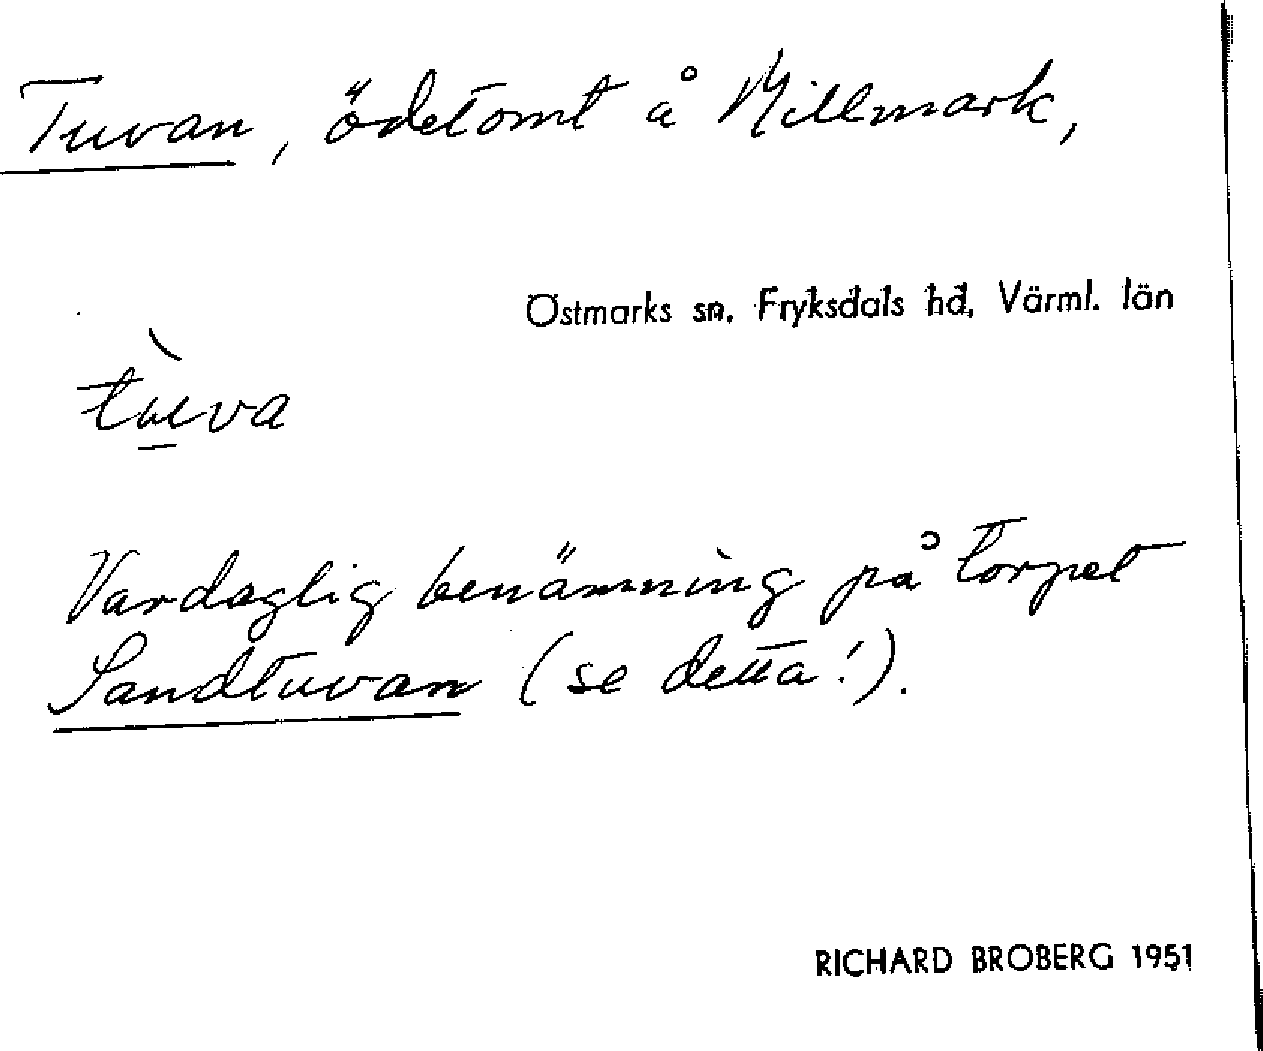 Tuvan, ödetomt å Millmark,
Östmarks sn, Fryksdals hd, Värml. län
tù̲va
Vardaglig benämning på torpet
Sandtuvan (se detta!).
RICHARD BROBERG 1951